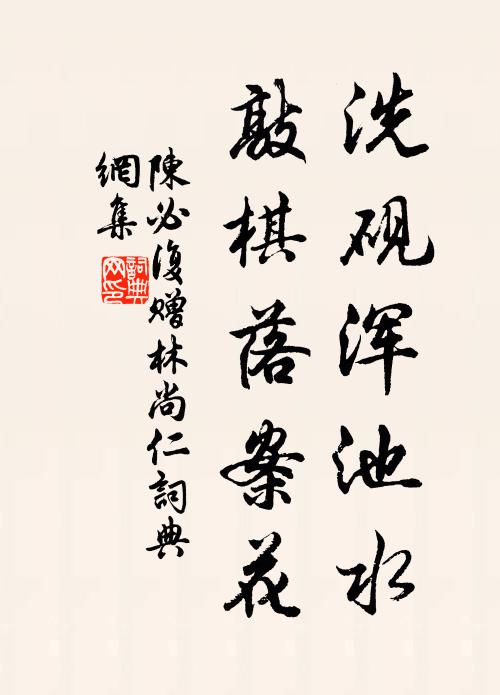 洗砚浑池水
敲棋落案花
陳必復赠林尚仁詞典
網集
詞典网印